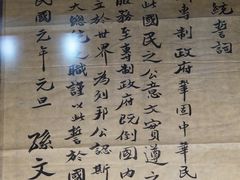 統誓詞
專制政府鞏固中華民
此國民之公意文實遵之
服務至專制政府既倒國內
立於世界為列邦公認斯
大總統之職謹以此誓於國
民國元年元旦
孫文